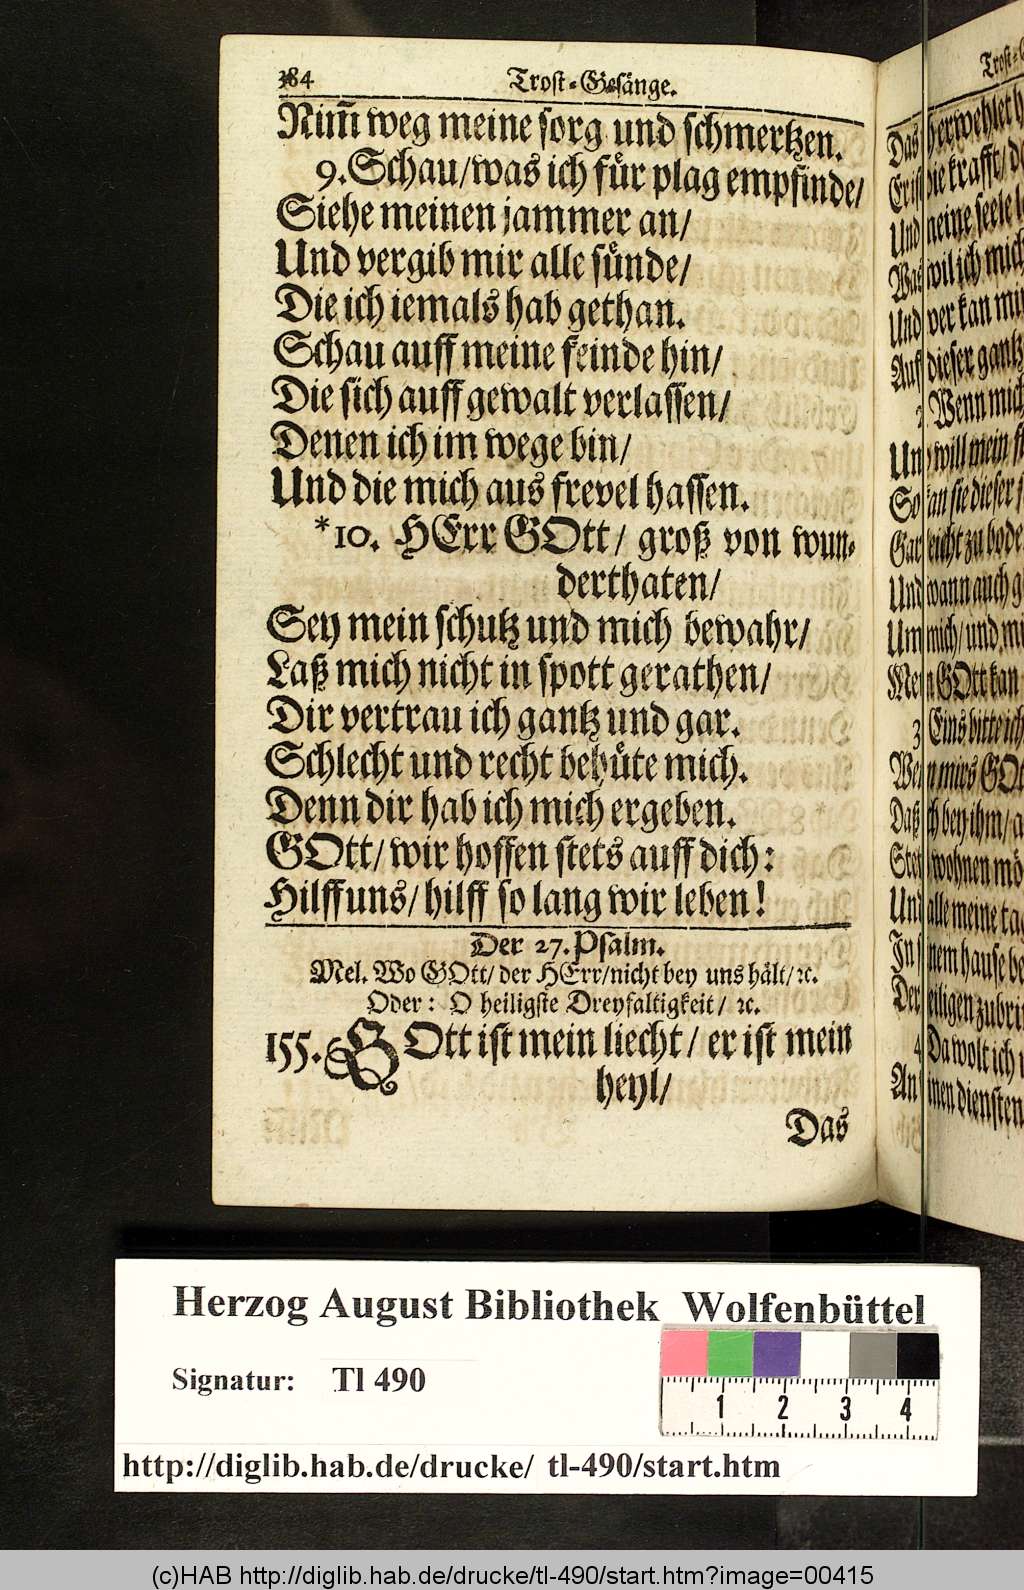 384 Trost-Gesänge.
Nim̃ weg meine sorg und schmertzen.
9. Schau/was ich fuͤr plag empfinde/
Siehe meinen jammer an/
Und vergib mir alle suͤnde/
Die ich iemals hab gethan.
Schau auff meine feinde hin/
Die sich auff gewalt verlassen/
Denen ich im wege bin/
Und die mich aus frevel hassen.
*10. HErr GOtt/ groß von wun-
derthaten/
Sey mein schutz und mich bewahr/
Laß mich nicht in spott gerathen/
Dir vertrau ich gantz und gar.
Schlecht und recht behuͤte mich.
Denn dir hab ich mich ergeben.
GOtt/ wir hoffen stets auff dich:
Hilff uns/ hilff so lang wir leben!
Der 27. Psalm.
Mel. Wo GOtt/ der HErr/nicht bey uns haͤlt/ ꝛc.
Oder: O heiligste Dreyfaltigkeit/ ꝛc.
155. GOtt ist mein liecht/ er ist mein
heyl/
Das
Trost-
Das
Und meine seele
Was wil ich mich
Und wer kan mir
Auf dieser gantz
2. Wenn mich
Und will mein
So kan sie dieser
Gar leicht zu bode
Und wann auch
Um mich/ und
Mein GOtt kan
3. Eins bitte ich
Wenn mirs GOt
Daß ich bey ihm/
Stets wohnen moͤ
Und alle meine ta
In seinem hause be
Der heiligen zubri
4. Da wolt ich
An seinen diensten
Herzog August Bibliothek Wolfenbüttel
Signatur: Tl 490
1 2 3 4
http://diglib.hab.de/drucke/ tl-490/start.htm
(c)HAB http://diglib.hab.de/drucke/tl-490/start.htm?image=00415